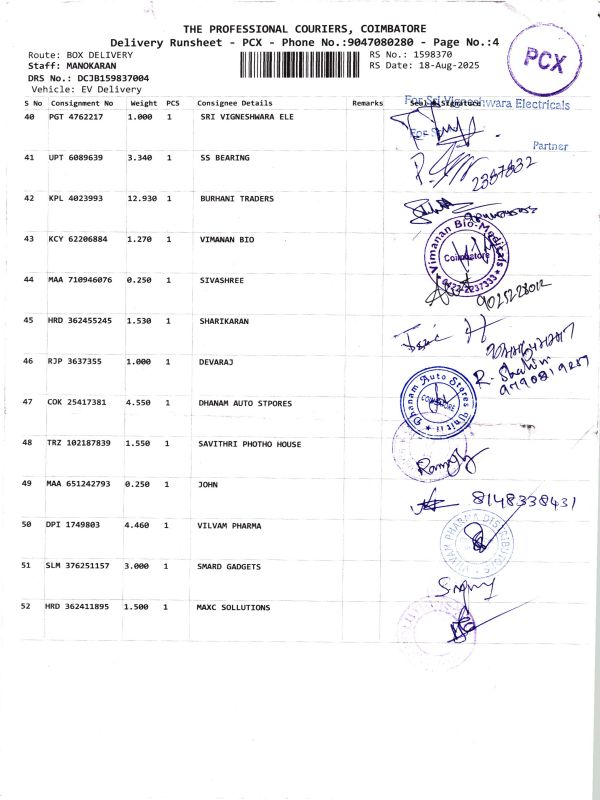 THE PROFESSIONAL COURIERS, COIMBATORE
Delivery Runsheet - PCX - Phone No.:9047080280 - Page No.:4
PCX
Route: BOX DELIVERY
RS No.: 1598370
Staff: MANOKARAN
RS Date: 18-Aug-2025
DRS No.: DCJB159837004
Vehicle: EV Delivery
S No Consignment No Weight PCS Consignee Details Remarks Seal & Signature
For Sri Vigneshwara Electricals
40 PGT 4762217 1.000 1 SRI VIGNESHWARA ELE
For Sri
Partner
41 UPT 6089639 3.340 1 SS BEARING
2387832
42 KPL 4023993 12.930 1 BURHANI TRADERS
43 KCY 62206884 1.270 1 VIMANAN BIO
Vimanan Bio-Medicals
Coimbatore
0422-2237333
44 MAA 710946076 0.250 1 SIVASHREE
9025228012
45 HRD 362455245 1.530 1 SHARIKARAN
46 RJP 3637355 1.000 1 DEVARAJ
R. Shahin
9790819287
47 COK 25417381 4.550 1 DHANAM AUTO STPORES
Dhanam Auto Stores
COIMBATORE
Unit II
48 TRZ 102187839 1.550 1 SAVITHRI PHOTHO HOUSE
49 MAA 651242793 0.250 1 JOHN
8148338431
50 DPI 1749803 4.460 1 VILVAM PHARMA
VILVAM PHARMA DISTRIBUTORS
51 SLM 376251157 3.000 1 SMARD GADGETS
52 HRD 362411895 1.500 1 MAXC SOLLUTIONS